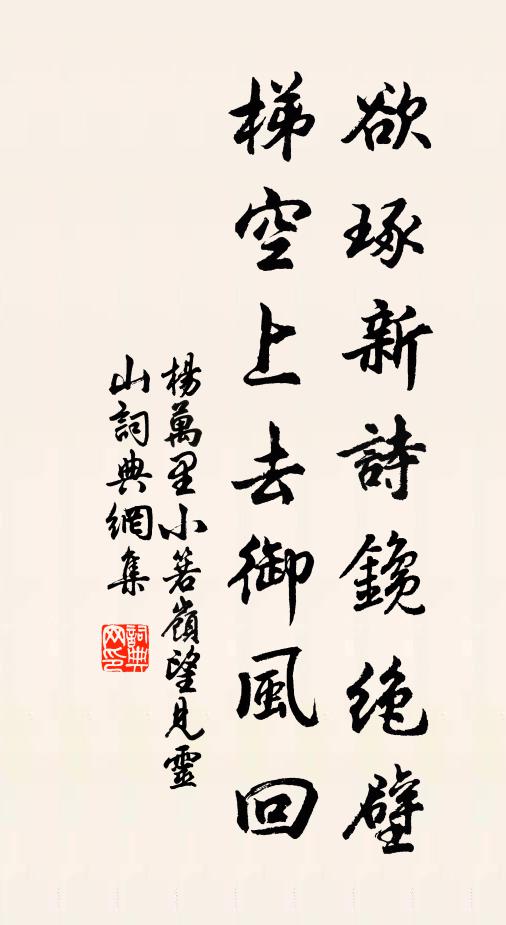 欲琢新詩鑱絶壁
梯空上去御風回
楊萬里小箬嶺望見靈
山詞典網集
詞典